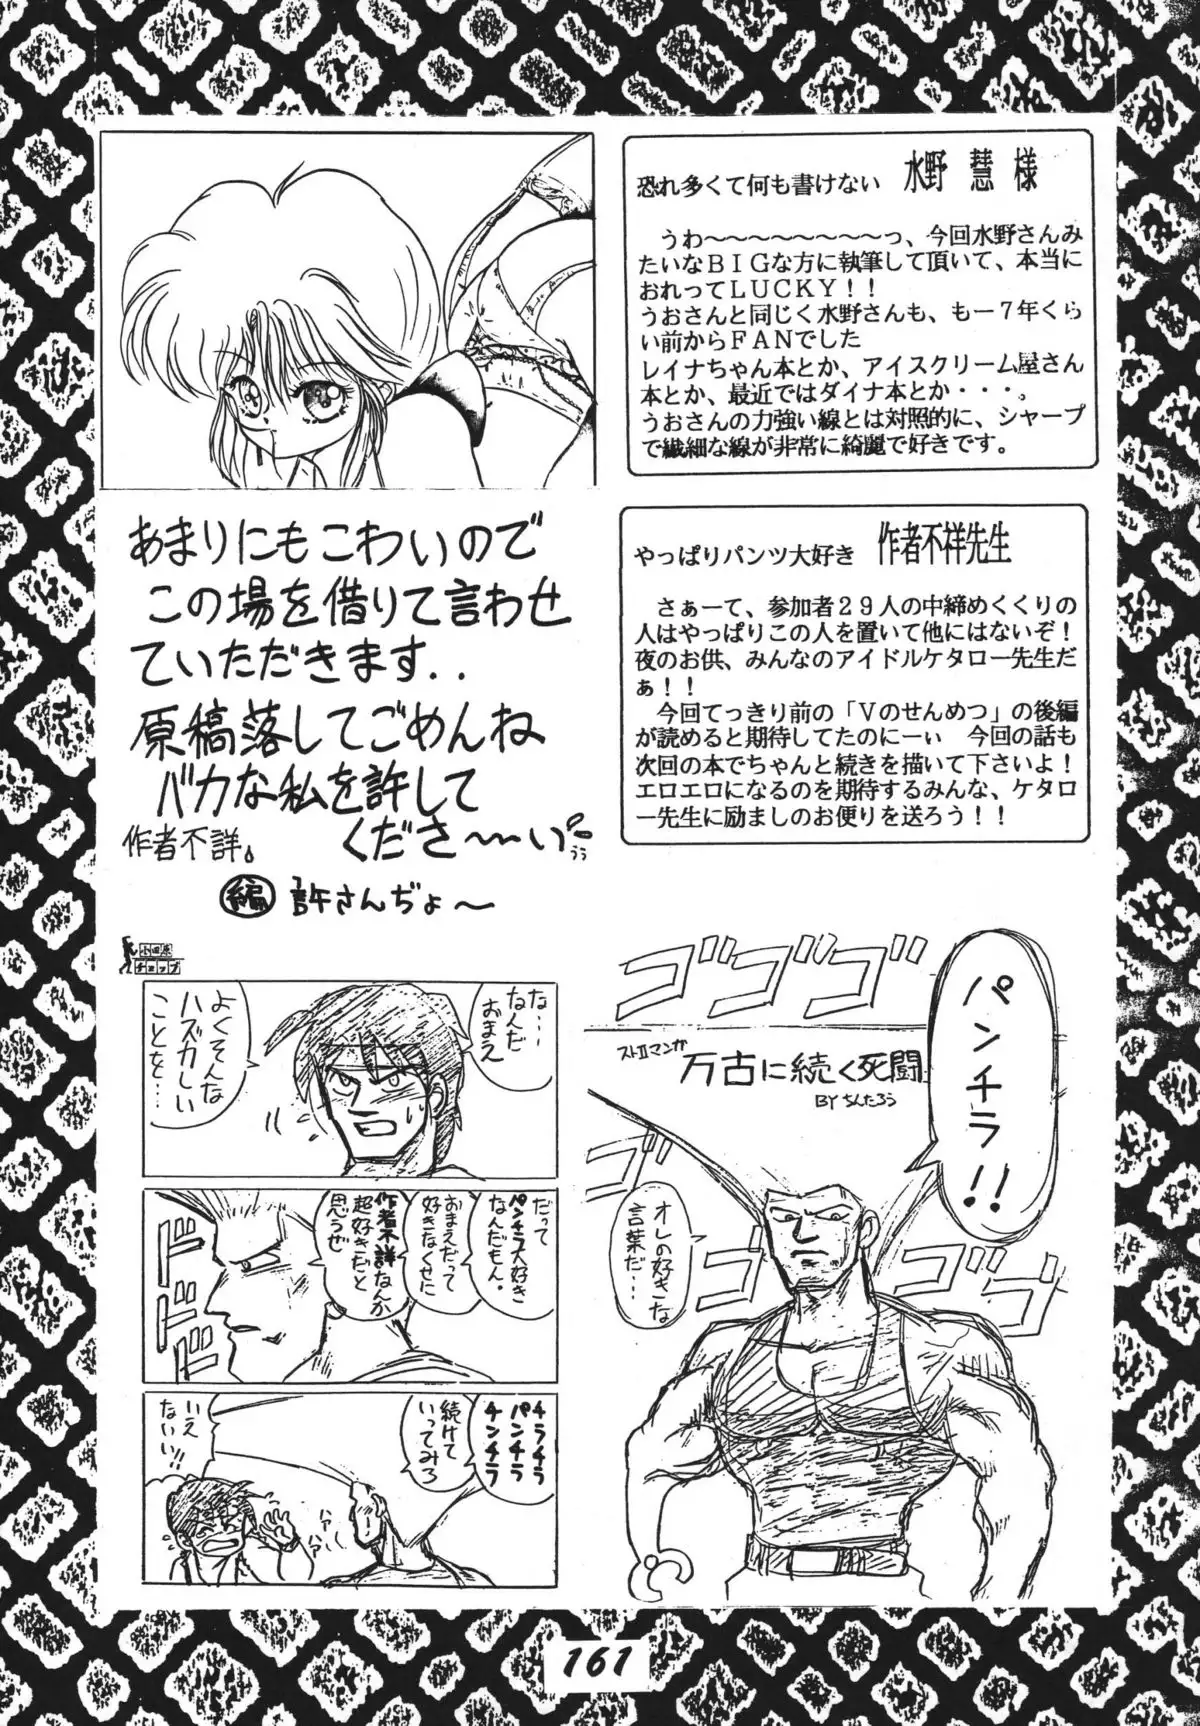 恐れ多くて何も書けない　水野　慧　様
うわ～～～～～～～～っ、今回水野さんみ
たいなＢＩＧな方に執筆して頂いて、本当に
おれってＬＵＣＫＹ！！
うおさんと同じく水野さんも、もー７年くら
い前からＦＡＮでした
レイナちゃん本とか、アイスクリーム屋さん
本とか、最近ではダイナ本とか・・・。
うおさんの力強い線とは対照的に、シャープ
で繊細な線が非常に綺麗で好きです。
あまりにもこわいので
この場を借りて言わせ
ていただきます..
原稿落してごめんね
バカな私を許して
くださ〜〜い
うぅ
作者不詳。
編 許さんぢょ〜
やっぱりパンツ大好き　作者不祥先生
さぁーて、参加者２９人の中締めくくりの
人はやっぱりこの人を置いて他にはないぞ！
夜のお供、みんなのアイドルケタロー先生だ
ぁ！！
今回てっきり前の「Ｖのせんめつ」の後編
が読めると期待してたのにーぃ　今回の話も
次回の本でちゃんと続きを描いて下さいよ！
エロエロになるのを期待するみんな、ケタロ
ー先生に励ましのお便りを送ろう！！
ゴゴゴ
パンチラ!!
ストⅡマンガ
万古に続く死闘
BY ちんたろう
ゴゴ
オレの好きな
言葉だ…
ゴゴゴ
小田原
チョップ
な…
なんだ
おまえ
よくそんな
ハズカしい
ことを…
だって
パンチラ大好き
なんだもん。
おまえだって
好きなくせに
作者不詳なんか
超好きだと
思うぜ
ドドドド
チラチラ
パンチラ
チンチラ
続けて
いってみろ
いえ
ないい!!
161